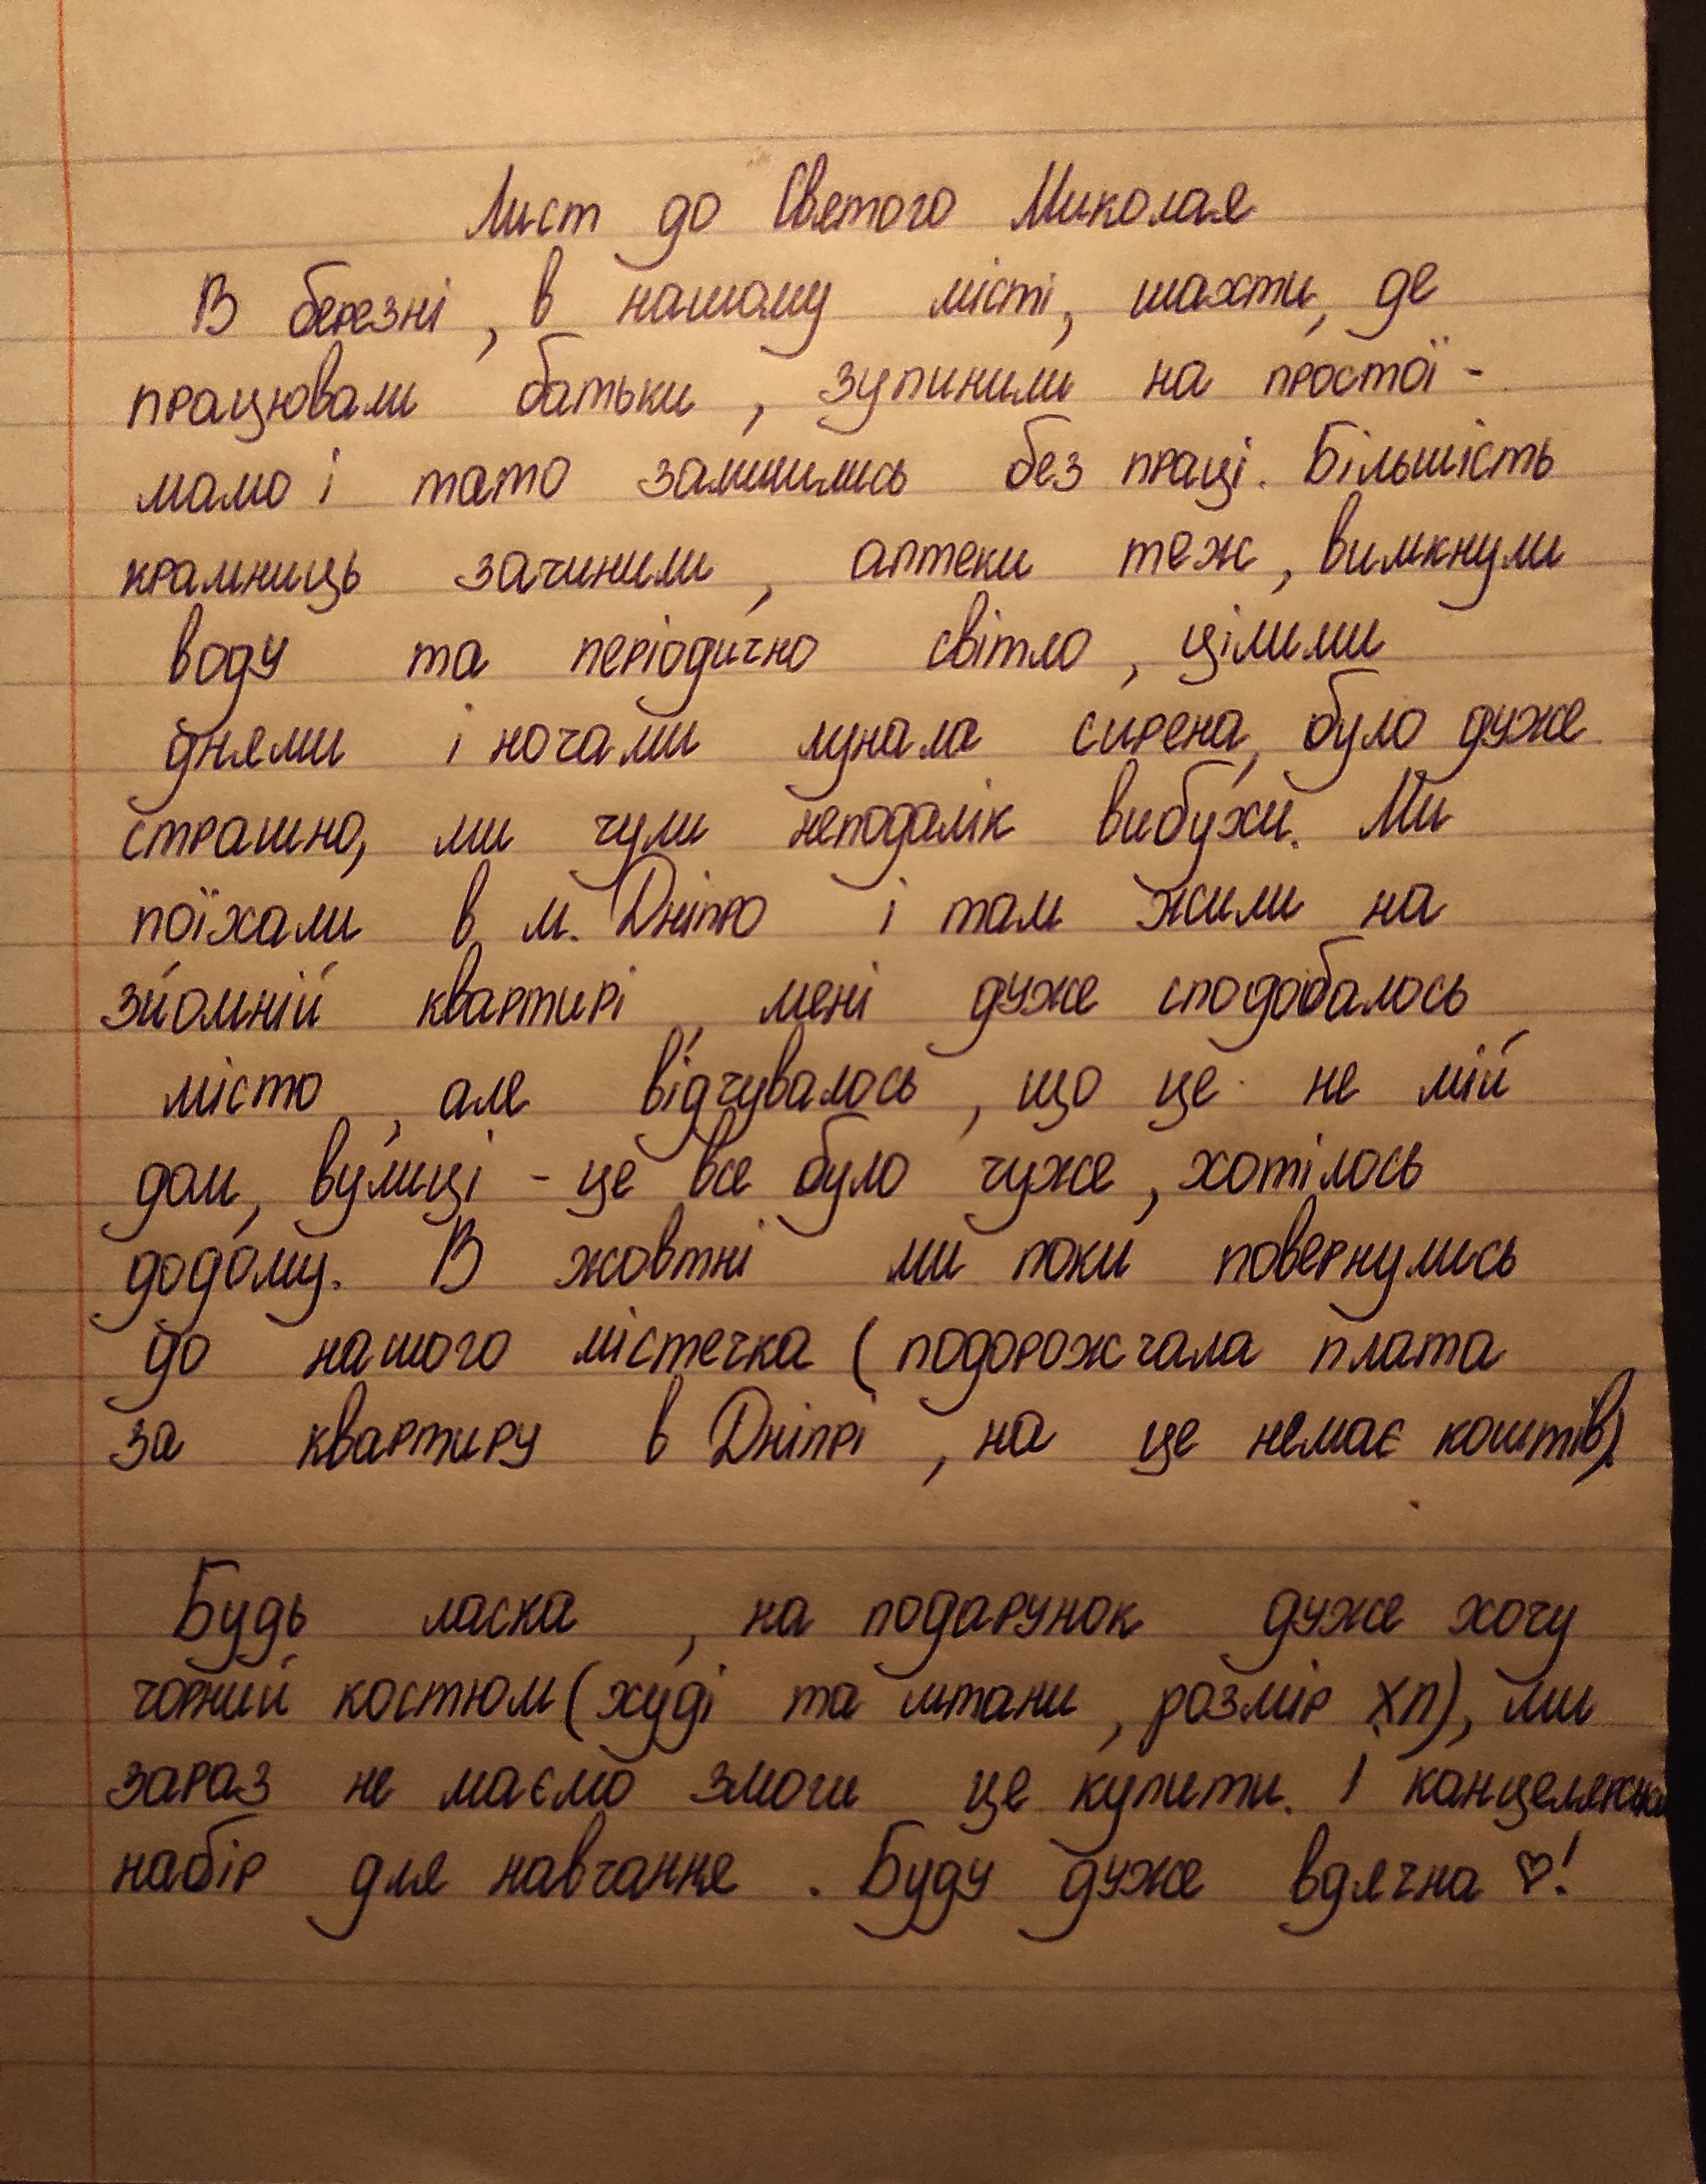 Лист до Святого Миколая
В березні, в нашому місті, шахти, де
працювали батьки, зупинили на простої -
мама і тато залишились без праці. Більшість
крамниць зачинили, аптеки теж, вимкнули
воду та періодично світло, цілими
днями і ночами лунала сирена, було дуже
страшно, ми чули неподалік вибухи. Ми
поїхали в м. Дніпро і там жили на
зйомній квартирі, мені дуже сподобалось
місто, але відчувалось, що це не мій
дом, вулиці - це все було чуже, хотілось
додому. В жовтні ми поки повернулись
до нашого містечка (подорожчала плата
за квартиру в Дніпрі, на це немає коштів).
Будь ласка, на подарунок дуже хочу
чорний костюм (худі та штани, розмір ХП), ми
зараз не маємо змоги це купити. І
набір для навчання. Буду дуже вдячна ♡!